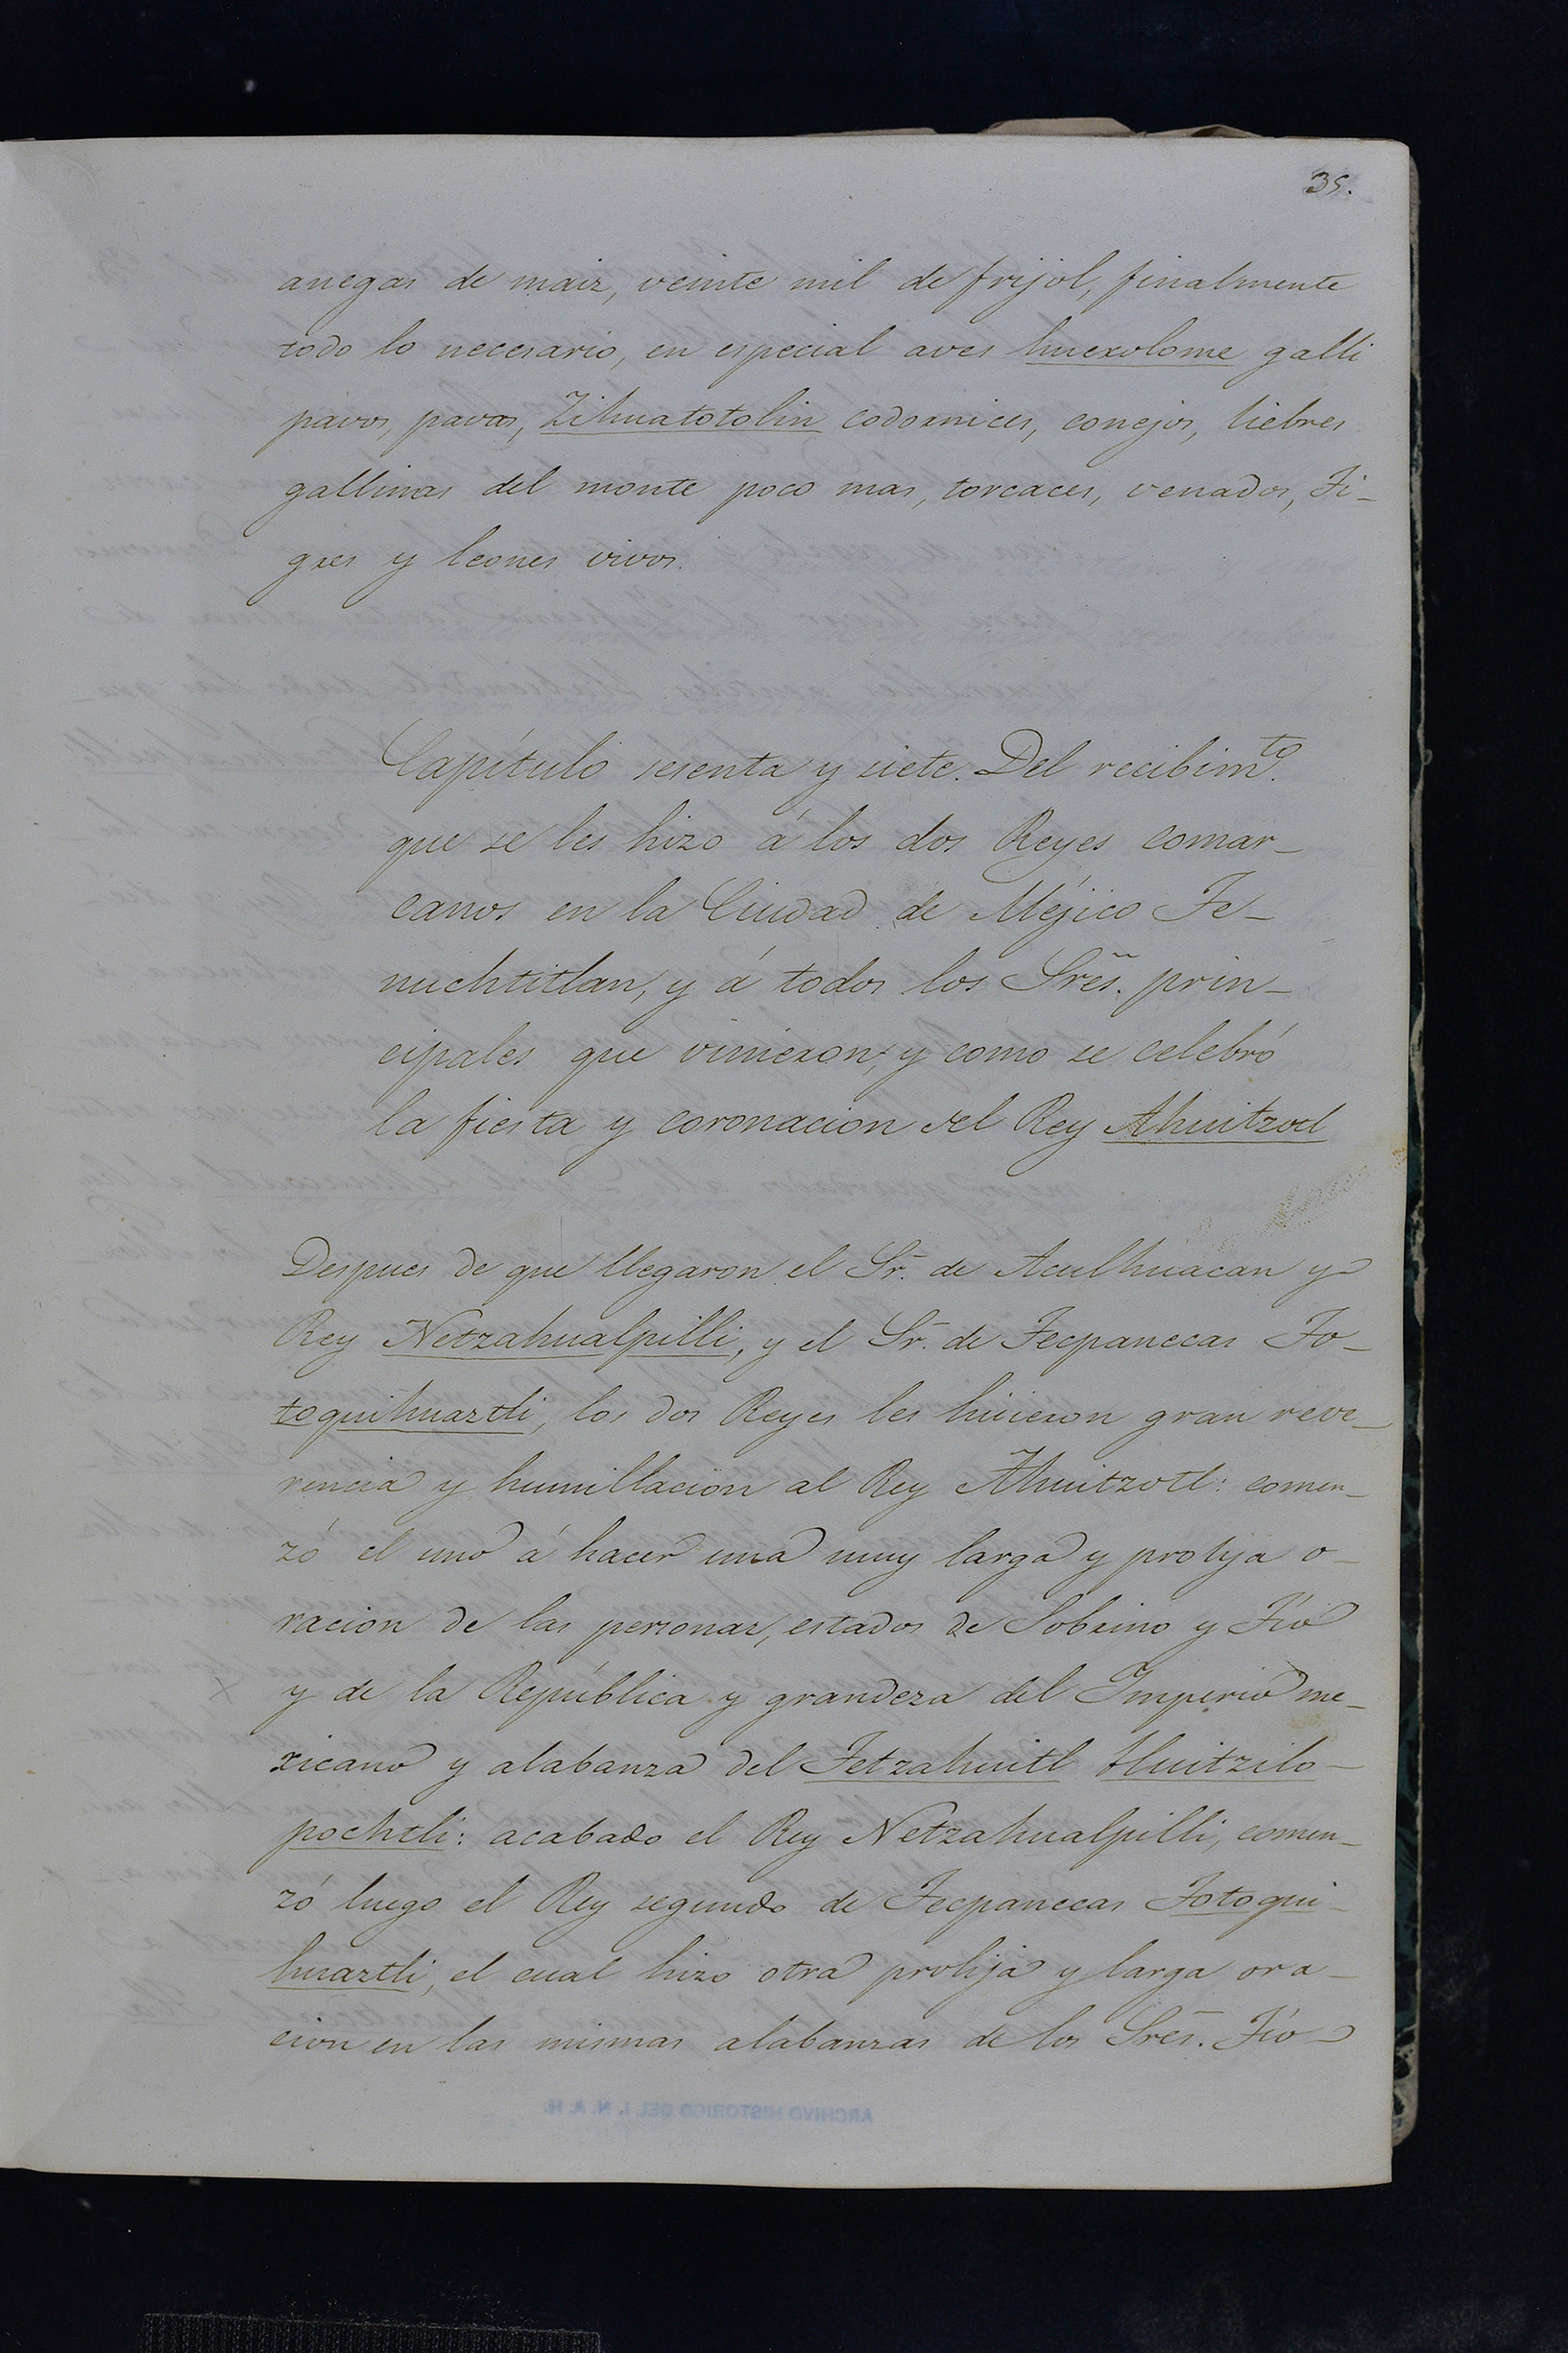 35.
anegas de maiz, veinte mil de frijol, finalmente
todo lo necesario, en especial aves huexolome galli
pavos, pavas, Zihuatotolin codornices, conejos, liebres
gallinas del monte poco mas, torcaces, venados, Ti-
gres y leones vivos.
Capítulo sesenta y siete. Del recibimto.
que se les hizo á los dos Reyes comar-
canos en la Ciudad de Méjico Te-
nuchtitlan, y á todos los Sres. prin-
cipales que vinieron, y como se celebró
la fiesta y coronacion del Rey Ahuitzotl
Despues de que llegaron el Sr. de Aculhuacan y
Rey Netzahualpilli, y el Sr. de Tecpanecas To-
toquihuaztli, los dos Reyes les hicieron gran reve-
rencia y humillacion al Rey Ahuitzotl: comen-
zó el uno á hacer una muy larga y prolija o-
racion de las personas, estados de Sobrino y Tio
y de la República y grandeza del Imperio me-
xicano y alabanza del Tetzahuitl Huitzilo-
pochtli: acabado el Rey Netzahualpilli, comen-
zó luego el Rey segundo de Tecpanecas Totoqui-
huaztli, el cual hizo otra prolija y larga ora-
cion en las mismas alabanzas de los Sres. Tio
ARCHIVO HISTORICO DEL I. N. A. H.